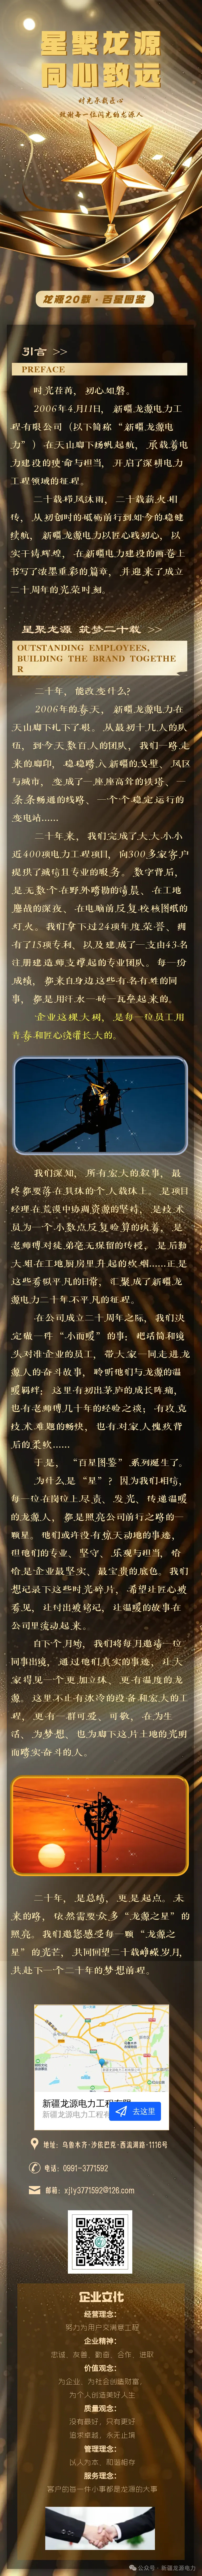 星聚龙源
同心致远
时光承载匠心
致谢每一位闪光的龙源人
龙源20载·百星图鉴
引言 >>
PREFACE
时光荏苒，初心如磐。
2006年4月11日，新疆龙源电力工
程有限公司（以下简称“新疆龙源电
力”）在天山脚下扬帆起航，承载着电
力建设的使命与担当，开启了深耕电力
工程领域的征程。
二十载栉风沐雨，二十载薪火相
传，从初创时的砥砺前行到如今的稳健
续航，新疆龙源电力以匠心践初心，以
实干铸辉煌，在新疆电力建设的画卷上
书写了浓墨重彩的篇章，并迎来了成立
二十周年的光荣时刻。
星聚龙源 筑梦二十载 >>
OUTSTANDING EMPLOYEES,
BUILDING THE BRAND TOGETHE
R
二十年，能改变什么？
2006年的春天，新疆龙源电力在
天山脚下扎下了根。从最初十几人的队
伍，到今天数百人的团队，我们一路走
来的脚印，稳稳踏入新疆的戈壁、风区
与城市，变成了一座座高耸的铁塔、一
条条畅通的线路、一个个稳定运行的
变电站……
二十年来，我们完成了大大小小
近400项电力工程项目，向300多家客户
提供了诚信且专业的服务。数字背后，
是无数个在野外踏勘的清晨、在工地
鏖战的深夜、在电脑前反复校核图纸的
灯火。我们拿下过24项年度荣誉、拥
有了15项专利、以及建成了一支由43名
注册建造师支撑起的专业团队。每一份
成绩，都来自身边这些有名有姓的同
事，都是用汗水一砖一瓦垒起来的。
企业这棵大树，是每一位员工用
青春和匠心浇灌长大的。
我们深知，所有宏大的叙事，最
终都要落在具体的个人载体上。是项目
经理在荒漠中协调资源的坚持，是技术
员为一个小数点反复验算的执着，是
老师傅对徒弟毫无保留的传授，是后勤
大姐在工地厨房里升起的炊烟……正是
这些看似平凡的日常，汇聚成了新疆龙
源电力二十年不平凡的征程。
在公司成立二十周年之际，我们决
定做一件“小而暖”的事：把话筒和镜
头对准企业的员工，带大家一同走进龙
源人的奋斗故事，聆听他们与龙源的温
暖羁绊；这里有初出茅庐的成长阵痛，
也有老师傅几十年的经验之谈；有攻克
技术难题的畅快，也有对家人愧疚背
后的柔软……
于是，“百星图鉴”系列诞生了。
为什么是“星”？因为我们相信，
每一位在岗位上尽责、发光、传递温暖
的龙源人，都是照亮公司前行之路的一
颗星。他们或许没有惊天动地的事迹，
但他们的专业、坚守、乐观与担当，恰
恰是企业最坚实、最宝贵的底色。我们
想记录下这些时光碎片，希望让匠心被
看见，让付出被铭记，让温暖的故事在
公司里流动起来。
自下个月始，我们将每月邀请一位
同事出镜，通过他们真实的事迹，让大
家得见一个更加立体、更有温度的龙
源。这里不止有冰冷的设备和宏大的工
程，更有一群可爱、可敬、在为生
活、为梦想、也为脚下这片土地的光明
而踏实奋斗的人。
二十年，是总结，更是起点。未
来的路，依然需要众多“龙源之星”的
照亮。我们邀您感受每一颗“龙源之
星”的光芒，共同回望二十载峥嵘岁月，
共赴下一个二十年的梦想前程。
新疆龙源电力工程有限
新疆龙源电力工程有
去这里
地址：乌鲁木齐·沙依巴克·西流湖路·1116号
电话：0991-3771592
邮箱：xjly3771592@126.com
企业文化
经营理念：
努力为用户交满意工程
企业精神：
忠诚、友善、勤奋、合作、进取
价值观念：
为企业、为社会创造财富，
为个人创造美好人生
质量观念：
没有最好，只有更好
追求卓越，永无止境
管理理念：
以人为本，和谐相存
服务理念：
客户的每一件小事都是龙源的大事
公众号·新疆龙源电力